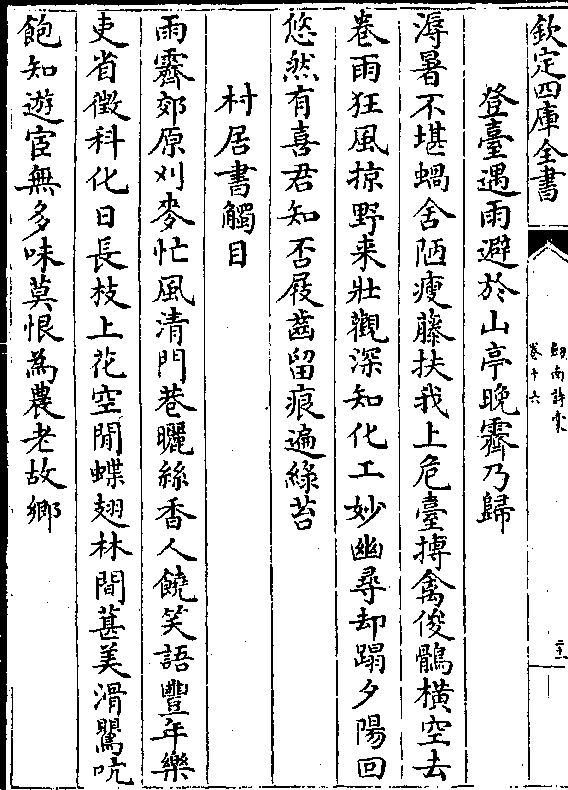 欽定四庫全書
劔南詩稾
卷十六
登臺遇雨避於山亭晚霽乃歸
溽暑不堪蝸舍陋瘦藤扶我上危臺搏禽俊鶻横空去
卷雨狂風掠野来壯觀深知化工妙幽尋却蹋夕陽回
悠然有喜君知否屐齒留痕遍緑苔
村居書觸目
雨霽郊原刈麥忙風清門巷曬絲香人饒笑語豐年樂
吏省徵科化日長枝上花空閒蝶翅林間葚美滑鸎吭
飽知遊宦無多味莫恨為農老故鄉